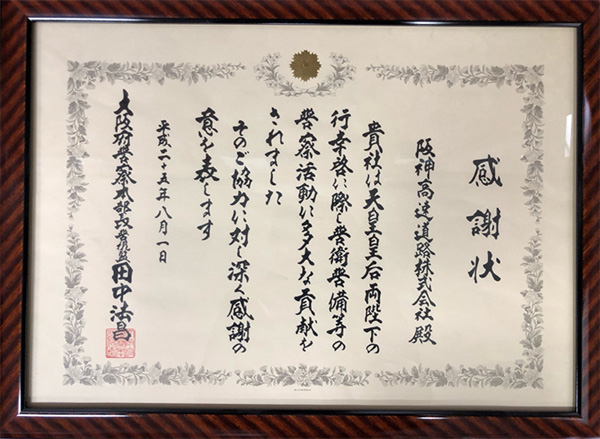 感謝状
阪神高速道路株式会社殿
貴社は天皇皇后両陛下の
行幸啓に際し警衛警備等の
警察活動に多大な貢献を
されました
そのご協力に対し深く感謝の
意を表します
平成二十五年八月一日
大阪府警察本部長警視監田中法昌